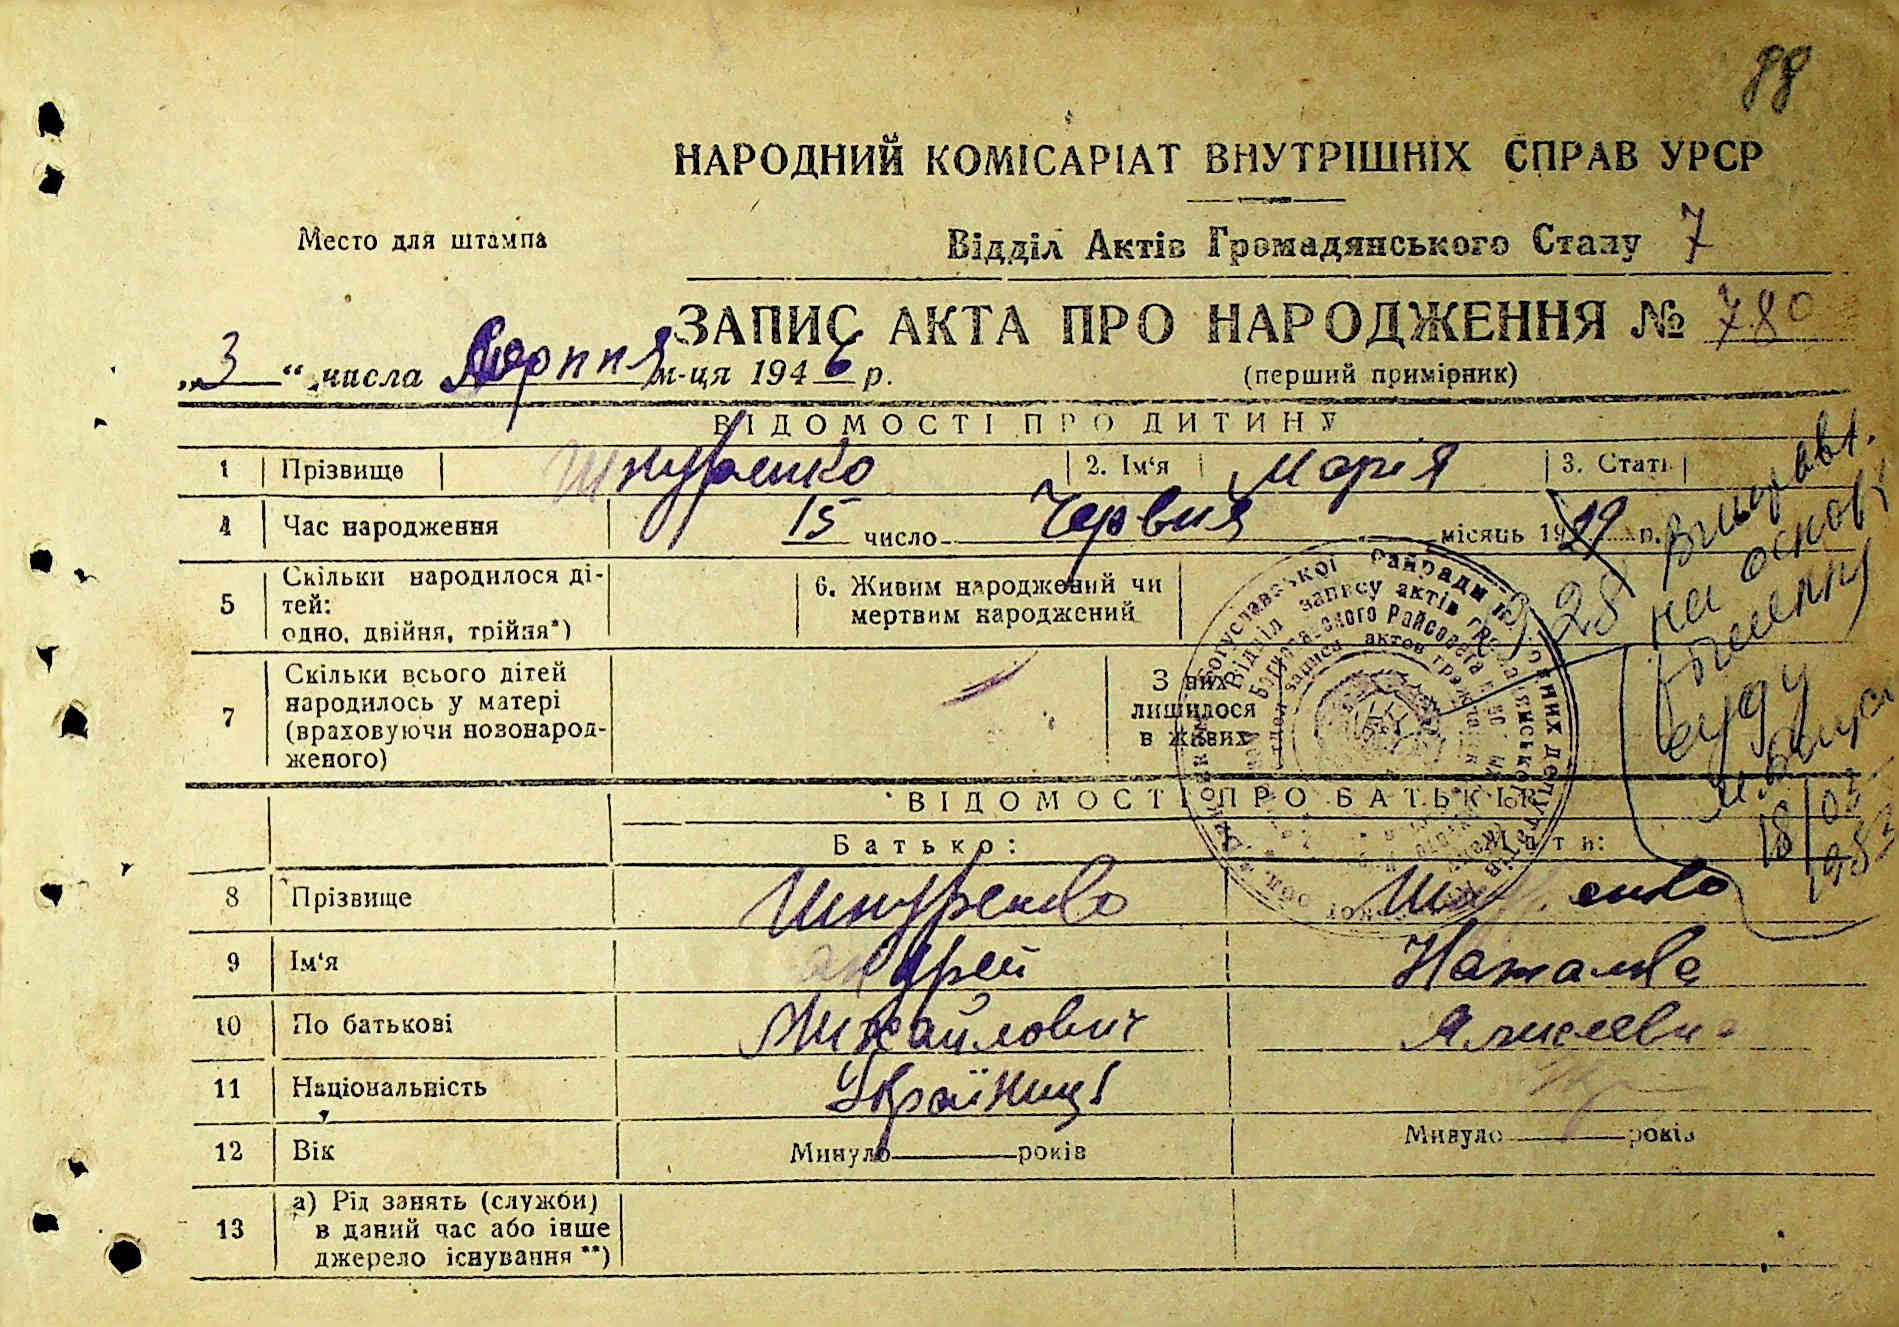 88
НАРОДНИЙ КОМІСАРІАТ ВНУТРІШНІХ СПРАВ УРСР
Место для штампа
Відділ Актів Громадянського Стану 7
ЗАПИС АКТА ПРО НАРОДЖЕННЯ № 780
„3“ числа Серпня м-ця 1946 р.
(перший примірник)
ВІДОМОСТІ ПРО ДИТИНУ
1 Прізвище Шнуренко 2. Ім'я Марія 3. Стать
4 Час народження 15 число Червня місяць 1929 р.
1928 виправл. на основі рішенню суду м. Богуслав 18/03 1983
5 Скільки народилося ді-
тей:
одно, двійня, трійня*)
6. Живим народжений чи
мертвим народжений
7 Скільки всього дітей
народилось у матері
(враховуючи новонарод-
женого)
З них
лишилося
в живих
ВІДОМОСТІ ПРО БАТЬКІВ
Батько: Мати:
8 Прізвище Шнуренко Шнуренко
9 Ім'я Андрей
10 По батькові Михайлович
11 Національність Українці Укр
12 Вік Минуло років Минуло років
13 а) Рід занять (служби)
в даний час або інше
джерело існування **)